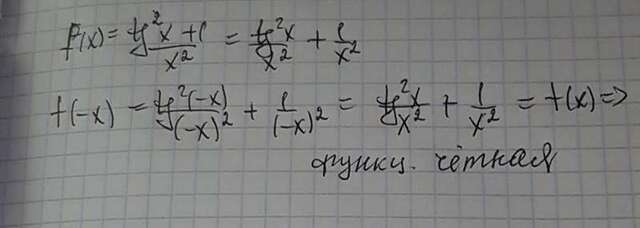 f(x) = (tg²x + 1)/x² = tg²x/x² + 1/x²
f(-x) = tg²(-x)/(-x)² + 1/(-x)² = tg²x/x² + 1/x² = f(x) ⇒
функц. чётная